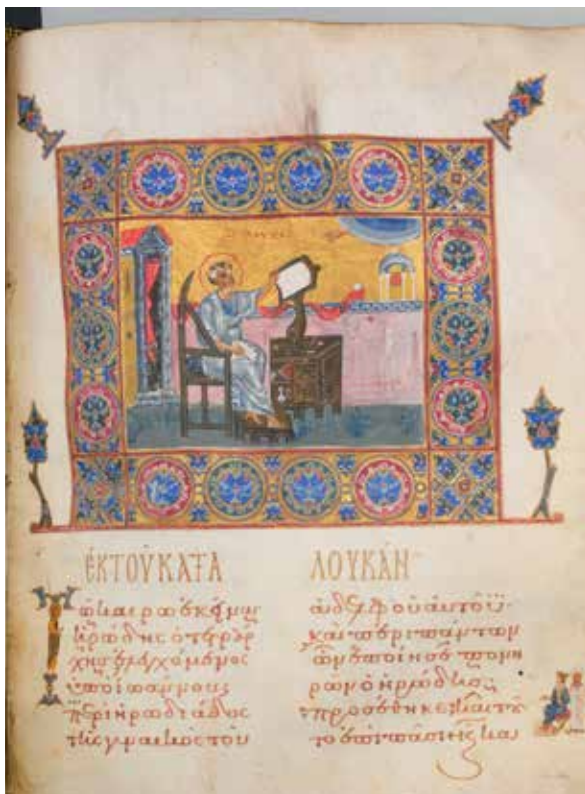 ἐΚ ΤΟῦ ΚΑΤΑ ΛΟΥΚΑΝ
Τῶ καιρῶ ἐκείνω
ἡρώδης ὁ τετράρ
χης ἐλεγχόμενος
ὑπὸ ἰωάννου
περὶ ἡρωδιάδος
τῆς γυναικὸς τοῦ
ἀδελφοῦ αὐτοῦ·
καὶ περὶ πάντων
ὧν ἐποίησε πονη
ρῶν ὁ ἡρώδης
προσέθηκε καὶ τοῦ
το ἐπὶ πᾶσι καὶ